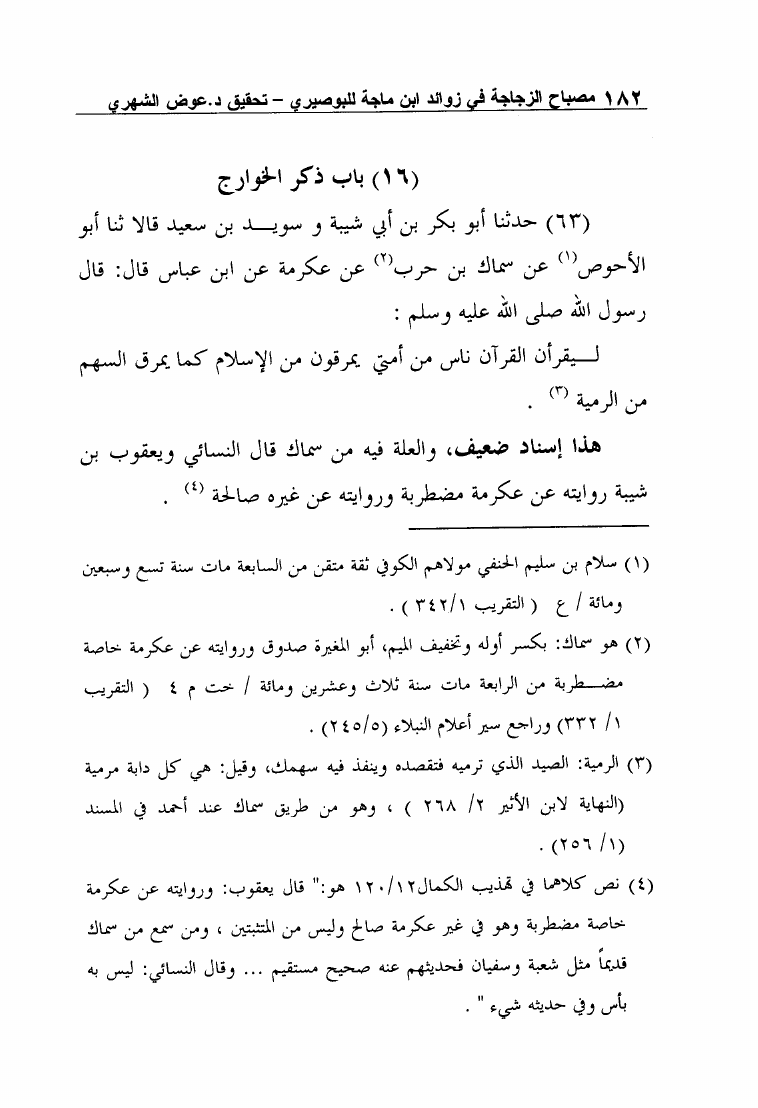 ١٨٢ مصباح الزجاجة في زوائد ابن ماجة للبوصيري – تحقيق د.عوض الشهري
(١٦) باب ذكر الخوارج
(٦٣) حدثنا أبو بكر بن أبي شيبة و سويــد بن سعيد قالا ثنا أبو
الأحوص(١) عن سماك بن حرب(٢) عن عكرمة عن ابن عباس قال: قال
رسول الله صلى الله عليه وسلم :
لــيقرأن القرآن ناس من أمتي يمرقون من الإسلام كما يمرق السهم
من الرمية (٣) .
هذا إسناد ضعيف، والعلة فيه من سماك قال النسائي ويعقوب بن
شيبة روايته عن عكرمة مضطربة وروايته عن غيره صالحة (٤) .
(١) سلام بن سليم الحنفي مولاهم الكوفي ثقة متقن من السابعة مات سنة تسع وسبعين
ومائة / ع ( التقريب ٣٤٢/١ ) .
(٢) هو سماك: بكسر أوله وتخفيف الميم، أبو المغيرة صدوق وروايته عن عكرمة خاصة
مضــطربة من الرابعة مات سنة ثلاث وعشرين ومائة / خت م ٤ ( التقريب
١/ ٣٣٢) وراجع سير أعلام النبلاء (٢٤٥/٥) .
(٣) الرمية: الصيد الذي ترميه فتقصده وينفذ فيه سهمك، وقيل: هي كل دابة مرمية
(النهاية لابن الأثير ٢/ ٢٦٨ ) ، وهو من طريق سماك عند أحمد في المسند
(١/ ٢٥٦) .
(٤) نص كلاهما في تهذيب الكمال١٢٠/١٢ هو:" قال يعقوب: وروايته عن عكرمة
خاصة مضطربة وهو في غير عكرمة صالح وليس من المتثبتين ، ومن سمع من سماك
قديماً مثل شعبة وسفيان فحديثهم عنه صحيح مستقيم ... وقال النسائي: ليس به
بأس وفي حديثه شيء " .